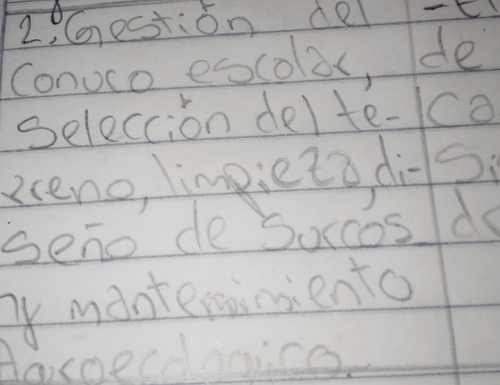 2º. Gestión del -t
Conuco escolar, de
Selección del te- ca
rreno, limpieza, di- Si
seño de Surcos de
y mantenimiento